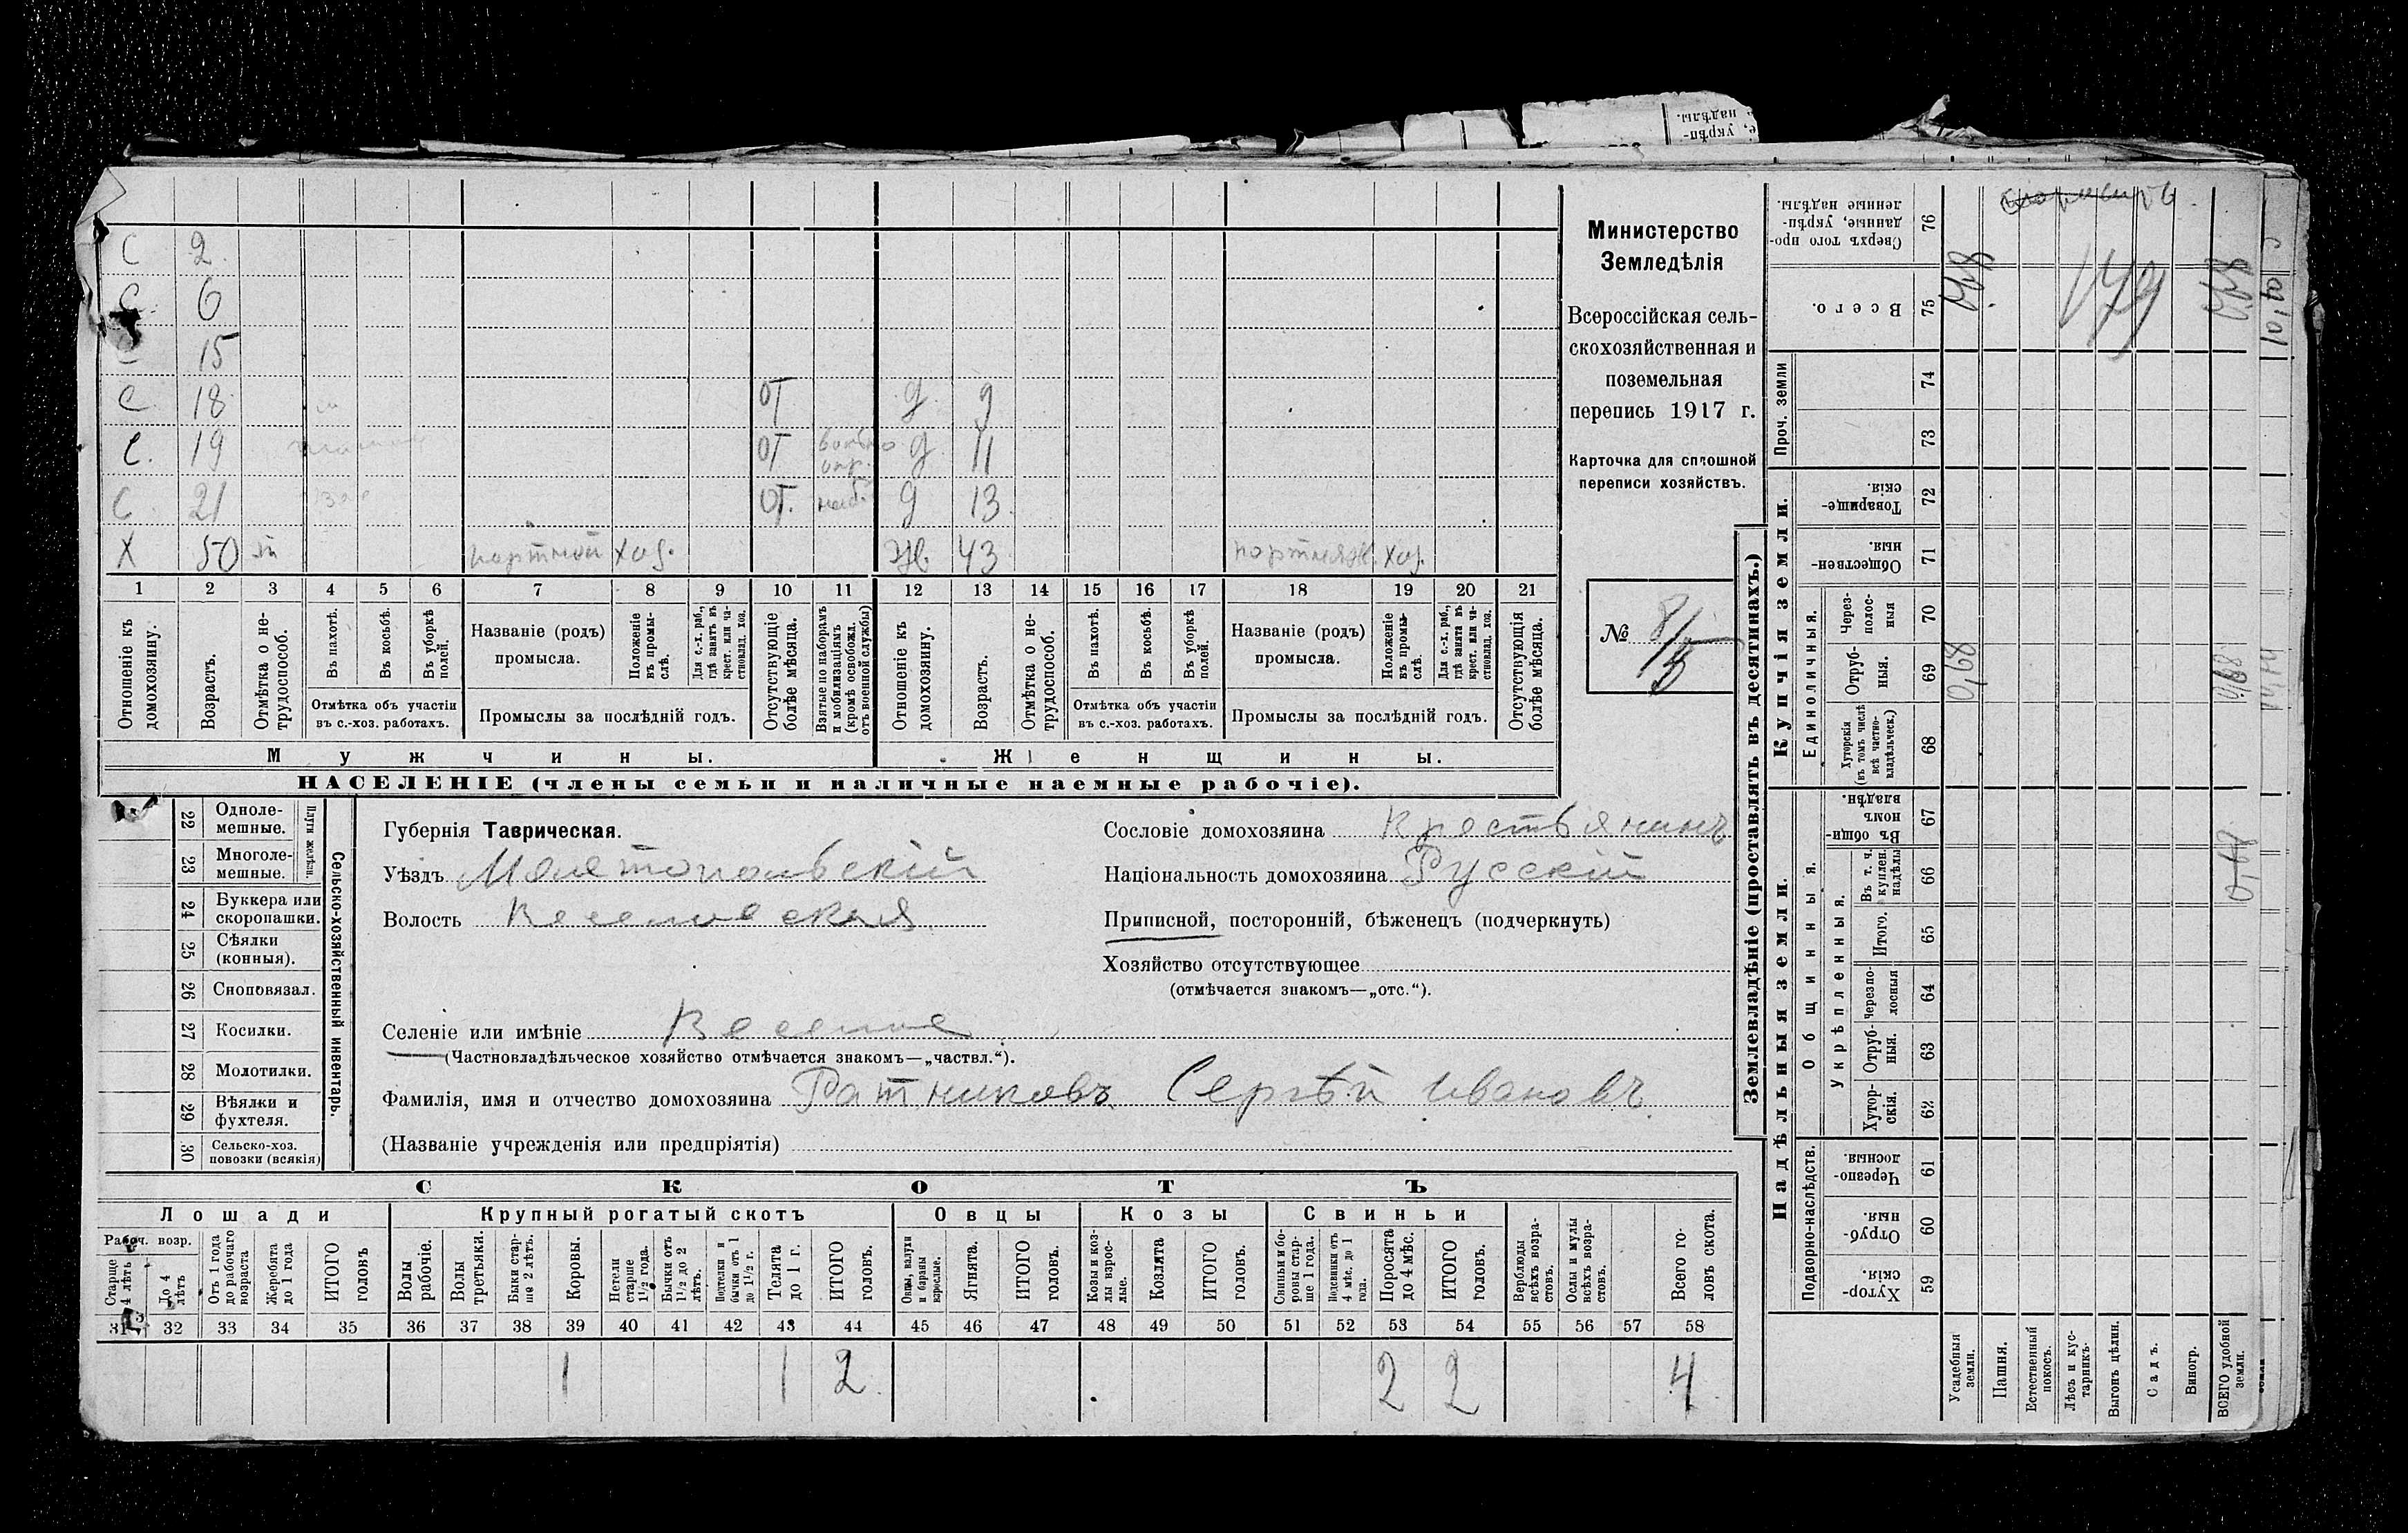 укрѣп-
надѣлы.
С 2
С 6
15
С 18 ОТ д 9
С. 19 ОТ д 11
С 21 ОТ. д 13
Х 50 портной хоз. Ж 43 портняж. хоз.
1 2 3 4 5 6 7 8 9 10 11 12 13 14 15 16 17 18 19 20 21
Отношеніе къ домохозяину.
Возрастъ.
Отмѣтка о не-трудоспособ.
Въ пахотѣ.
Въ косьбѣ.
Въ уборкѣ полей.
Отмѣтка объ участіи
въ с.-хоз. работахъ.
Названіе (родъ)
промысла.
Положеніе въ промы-слѣ.
Для с.-х. раб., гдѣ занятъ въ крест. или ча-стновлад. хоз.
Промыслы за послѣдній годъ.
Отсутствующіе болѣе мѣсяца.
Взятые по наборамъ и мобилизаціямъ (кромѣ освобожд. отъ военной службы)
Отношеніе къ домохозяину.
Возрастъ.
Отмѣтка о не-трудоспособ.
Въ пахотѣ.
Въ косьбѣ.
Въ уборкѣ полей.
Отмѣтка объ участіи
въ с.-хоз. работахъ.
Названіе (родъ)
промысла.
Положеніе въ промы-слѣ.
Для с.-х. раб., гдѣ занята въ крест. или ча-стновлад. хоз.
Промыслы за послѣдній годъ.
Отсутствующія болѣе мѣсяца.
Мужчины.
Женщины.
НАСЕЛЕНІЕ (члены семьи и наличные наемные рабочіе).
Министерство
Земледѣлія
Всероссійская сель-
скохозяйственная и
поземельная
перепись 1917 г.
Карточка для сплошной
переписи хозяйствъ.
№
22 Одноле-мешные.
23 Многоле-мешные.
Плуги желѣзн.
24 Буккера или скоропашки.
25 Сѣялки (конныя).
26 Сноповязал.
27 Косилки.
28 Молотилки.
29 Вѣялки и фухтеля.
30 Сельско-хоз. повозки (всякія)
Сельско-хозяйственный инвентарь.
Губернія Таврическая.
Уѣздъ Мелитопольскій
Волость Веселовская
Селеніе или имѣніе Веселое
(Частновладѣльческое хозяйство отмѣчается знакомъ—„частвл.“).
Фамилія, имя и отчество домохозяина Ратниковъ Сергѣй Ивановъ.
(Названіе учрежденія или предпріятія)
Сословіе домохозяина Крестьянинъ
Національность домохозяина Русскій
Приписной, посторонній, бѣженецъ (подчеркнуть)
Хозяйство отсутствующее
(отмѣчается знакомъ—„отс.“).
СКОТЪ
Лошади Крупный рогатый скотъ Овцы Козы Свиньи
Рабоч. возр.
Старше 4 лѣтъ
До 4 лѣтъ
Отъ 1 года до рабочаго возраста
Жеребята до 1 года
ИТОГО головъ
Волы рабочіе.
Волы третьяки.
Быки стар-ше 2 лѣтъ.
Коровы.
Нетели старше 1½ года.
Бычки отъ 1½ до 2 лѣтъ.
Подтелки и бычки отъ 1 до 1½ г.
Телята до 1 г.
ИТОГО головъ.
Овцы, валухи и бараны взрослые.
Ягнята.
ИТОГО головъ.
Козы и коз-лы взрос-лые.
Козлята
ИТОГО головъ.
Свиньи и бо-ровы стар-ше 1 года.
Подсвинки отъ 4 мѣс. до 1 года.
Поросята до 4 мѣс.
ИТОГО головъ.
Верблюды всѣхъ возра-стовъ.
Ослы и мулы всѣхъ возра-стовъ.
Всего го-ловъ скота.
31 32 33 34 35 36 37 38 39 40 41 42 43 44 45 46 47 48 49 50 51 52 53 54 55 56 57 58
1 1 2 2 2 4
Землевладѣніе (проставлять въ десятинахъ.)
Надѣльныя земли.
Купчія земли.
Проч. земли
Подворно-наслѣдств.
Общинныя.
Укрѣпленныя.
Единоличныя.
59 Хутор-скія.
60 Отруб-ныя.
61 Черезпо-лосныя.
62 Хутор-скія.
63 Отруб-ныя.
64 Черезпо-лосныя
65 Итого.
66 Въ т. ч. куплен. надѣлы
67 Въ общи-номъ владѣн.
68 Хуторскія (въ томъ числѣ всѣ частно-владѣльческ.)
69 Отруб-ныя. 0,68 0,68
70 Через-полос-ныя
71 Обществен-ныя.
72 Товарище-скія.
73
74
75 Всего.
76 Сверхъ того про-данные, укрѣп-ленные надѣлы.
179
Усадебныя земли.
Пашня.
Естественный покосъ.
Лѣсъ и кус-тарникъ.
Выгонъ цѣлин.
Садъ.
Виногр.
ВСЕГО удобной земли.